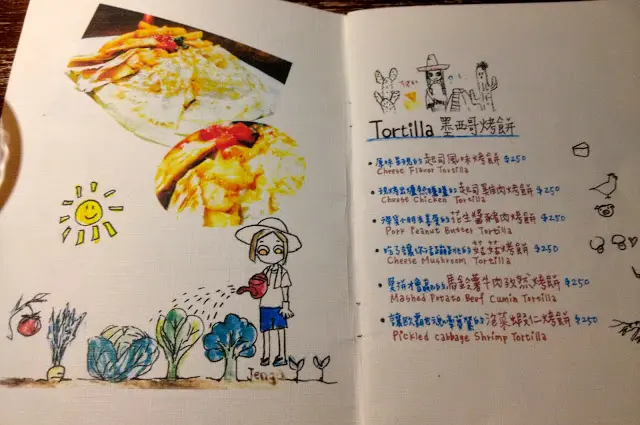 Jeng
Tortilla 墨西哥烤餅
原味呈現的起司風味烤餅 $250
Cheese Flavor Tortilla
起司雞肉烤餅 $250
Cheese Chicken Tortilla
花生醬豬肉烤餅 $250
Pork Peanut Butter Tortilla
菇菇烤餅 $250
Cheese Mushroom Tortilla
馬鈴薯牛肉孜然烤餅 $250
Mashed Potato Beef Cumin Tortilla
泡菜蝦仁烤餅 $250
Pickled cabbage Shrimp Tortilla